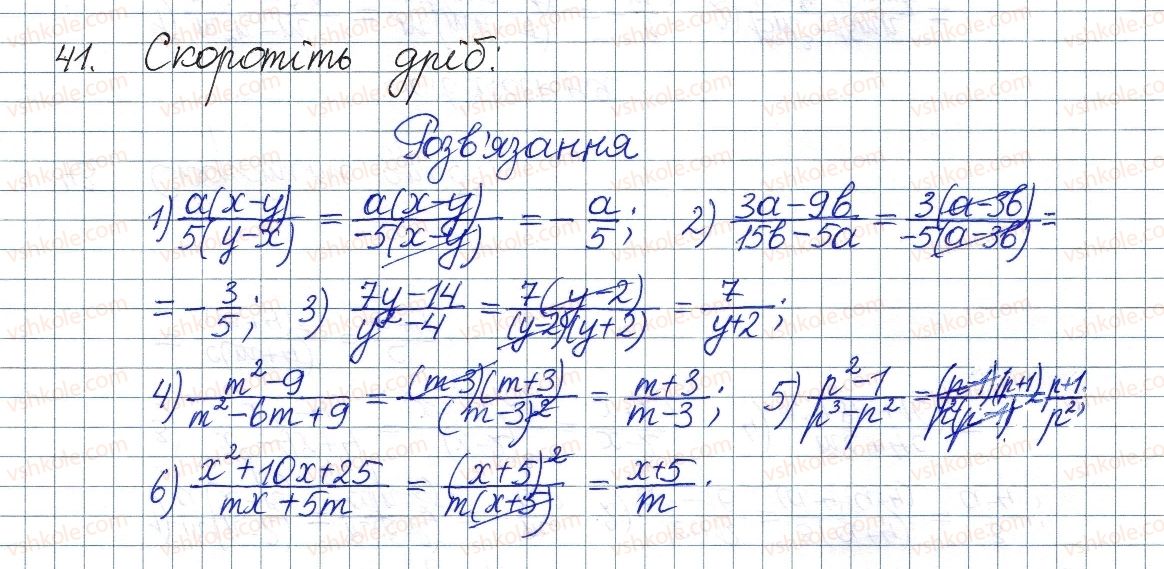 41. Скоротіть дріб:
Розв'язання
1) a(x-y)/5(y-x) = a(x-y)/-5(x-y) = -a/5; 2) 3a-9b/15b-5a = 3(a-3b)/-5(a-3b) =
= -3/5; 3) 7y-14/y²-4 = 7(y-2)/(y-2)(y+2) = 7/y+2;
4) m²-9/m²-6m+9 = (m-3)(m+3)/(m-3)² = m+3/m-3; 5) p²-1/p³-p² = (p-1)(p+1)/p²(p-1) = p+1/p²;
6) x²+10x+25/mx+5m = (x+5)²/m(x+5) = x+5/m.
vshkole.com